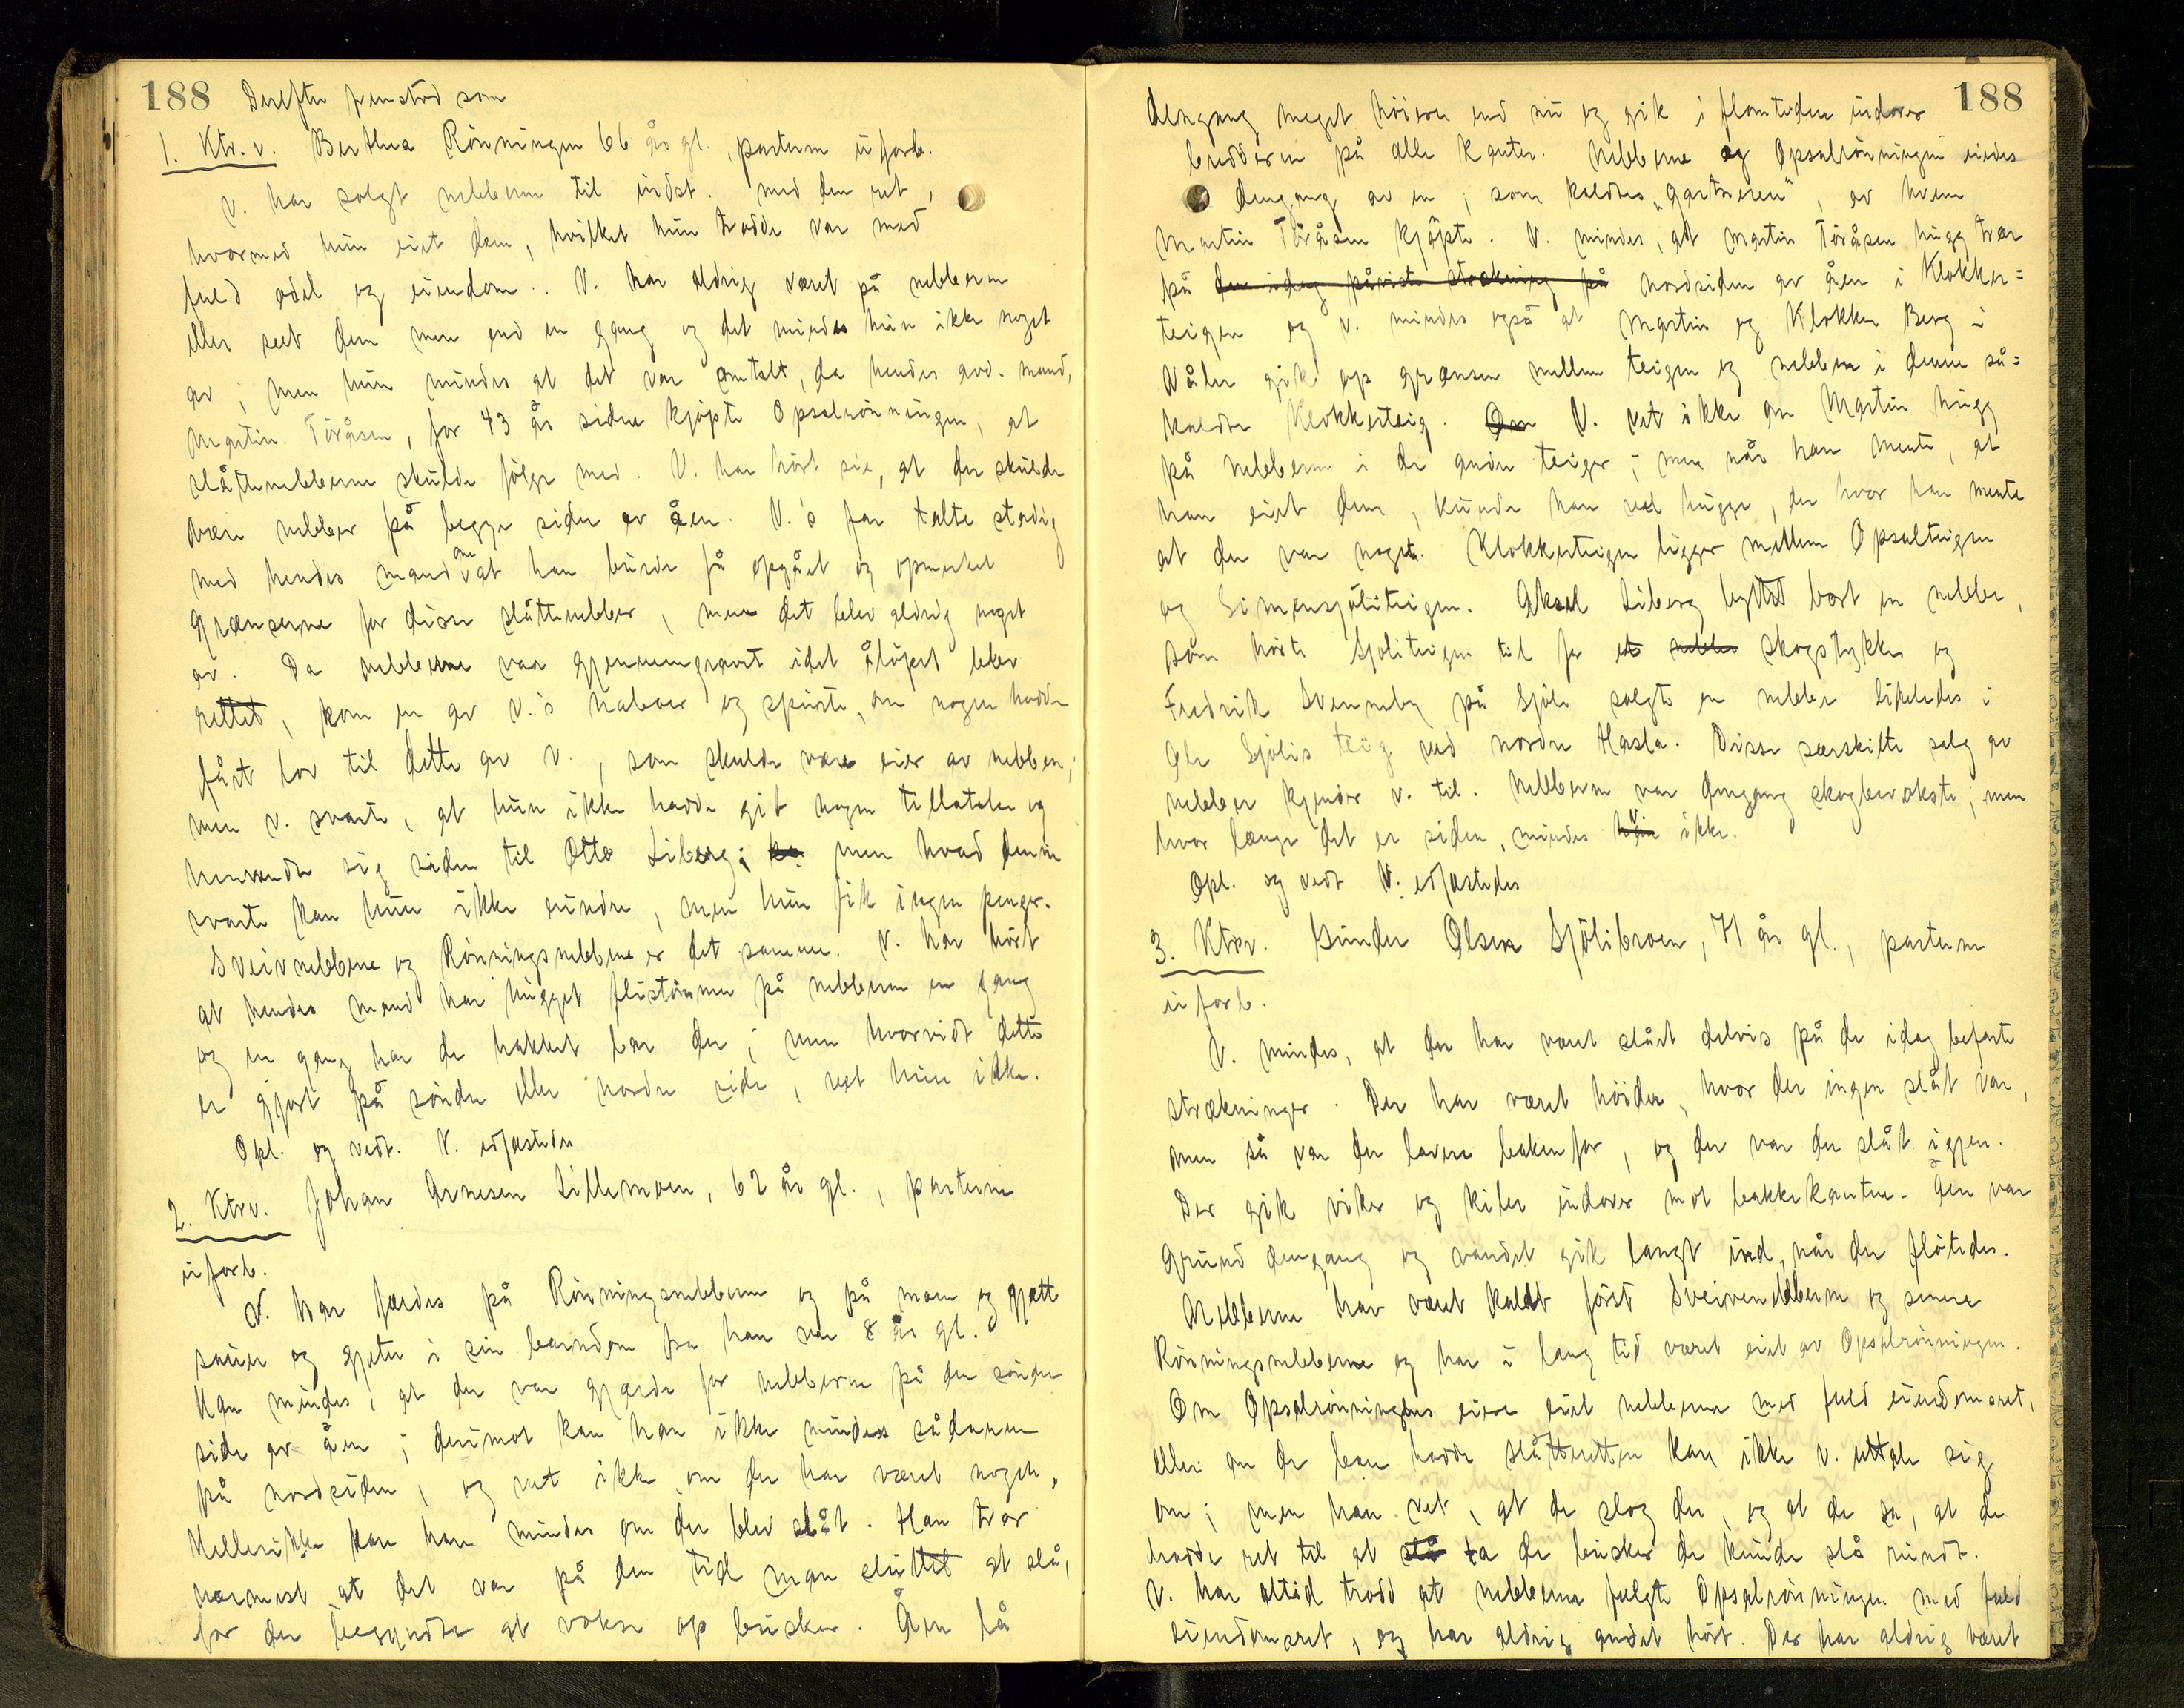 188 Derefter fremstod som
1. Ktr. v. Berthea Rönningen 66 år gl., partern uforb.
V. har solgt nebberne til indst. med den ret,
hvormed hun eiet dem, hvilket hun trodde var med
fuld odel og eiendom. V. har aldrig været på nebberne
eller seet dem mer end en gang og det mindes hun ikke noget
av; men hun mindes at det var omtalt, da hendes avd. mand,
Martin Töråsen, for 43 år siden kjöpte Opsalrönningen, at
slåttenebberne skulde fölge med. V. har hört sie, at der skulde
være nebber på begge sider av åen. V.'s far talte stadig
med hendes mand om at han burde få opgået og opmerket
grænserne for disse slåttenebber, men det blev aldrig noget
av. Da nebberne var gjennemgravet idet åløpet blev
rettet, kom en av V.'s naboer og spurte, om nogen hadde
fåt lov til dette av V., som skulde være eier av nebben,
men V. svarte, at hun ikke hadde git nogen tillatelse og
henvendte sig siden til Otto Liberg; men hvad denne
svarte kan hun ikke erindre, men hun fik ingen penger.
Sveivnebbene og Rönningsnebbene er det samme. V. har hört
at hendes mand har hugget flistömmer på nebberne en gang
og en gang har de hakket bar der; men hvorvidt dette
er gjort på söndre eller nordre side, vet hun ikke.
Opl. og vedt. V. edfæstedes
2. Ktrv. Johan Arnesen Lillemoen, 62 år gl., partern
uforb.
V. har færdes på Rönningsnebberne og på moen og gjætt
sauer og gjeter i sin barndom fra han var 8 år gl.
Han mindes, at der var gjærde for nebberne på den söndre
side av åen; derimot kan han ikke mindes sådanne
på nordsiden, og vet ikke om der har været nogen.
Hellerikke kan han mindes om der blev slåt. Han tror
nærmest at det var på den tid man sluttet at slå,
for der begyndte at vokse op busker. Åen lå
188
dengang meget höiere end nu og gik i flomtiden indover
breddene på alle kanter. Nebberne og Opsalrönningen eiedes
dengang av en, som kaldtes "gartneren", av hvem
Martin Töråsen kjöpte. V. mindes, at Martin Töråsen hugg trær
på den idag påviste strekning på nordsiden av åen i Klokker=
teigen og V. mindes også at Martin og Klokker Berg i
Våler gik op grænsen mellem teigen og nebben i denne så=
kaldte Klokkerteig. V. vet ikke om Martin hugg
på nebberne i de andre teiger; men når han mente, at
han eiet dem, kunde han vel hugge, der hvor han mente
at der var noget. Klokkerteigen ligger mellem Opsalteigen
og Simensjöliteigen. Aksel Liberg byttet bort en nebber,
som hörte Sjöliteigen til for et skogstykke og
Fredrik Svenneby på Sjöli solgte en nebbe likeledes i
Ole Sjölis teig ved nordre Hasla. Disse særskilte salg av
nebber kjender V. til. Nebberne var dengang skogbevokste; men
hvor længe det er siden, mindes han ikke.
Opl. og vedt V. edfæstedes
3. Ktrv. Gunder Olsen Sjölibroen, 71 år gl., partern
uforb.
V. mindes, at der har været slåt delvis på de idag befarte
strækninger. Der har været höider, hvor der ingen slåt var,
men så var der lavere bakenfor, og der var der slåt igjen.
Der gik viker og kiler indover mot bakkekanten. Åen var
grund dengang og vandet gik langt ind, når der flötedes.
Nebberne har været kaldt först Sveivenebberne og senere
Rönningsnebberne og har i lang tid været eiet av Opsalrönningen.
Om Opsalrönningens eiere eiet nebberne med fuld eiendomsret,
eller om de bare hadde slåtteretten kan ikke V. uttale sig
om; men han vet, at de slog der, og at de sa, at de
hadde ret til at slå ta de busker de kunde slå rundt.
V. har altid trodd at nebberne fulgte Opsalrönningen med fuld
eiendomsret, og har aldrig andet hört. Der har aldrig været